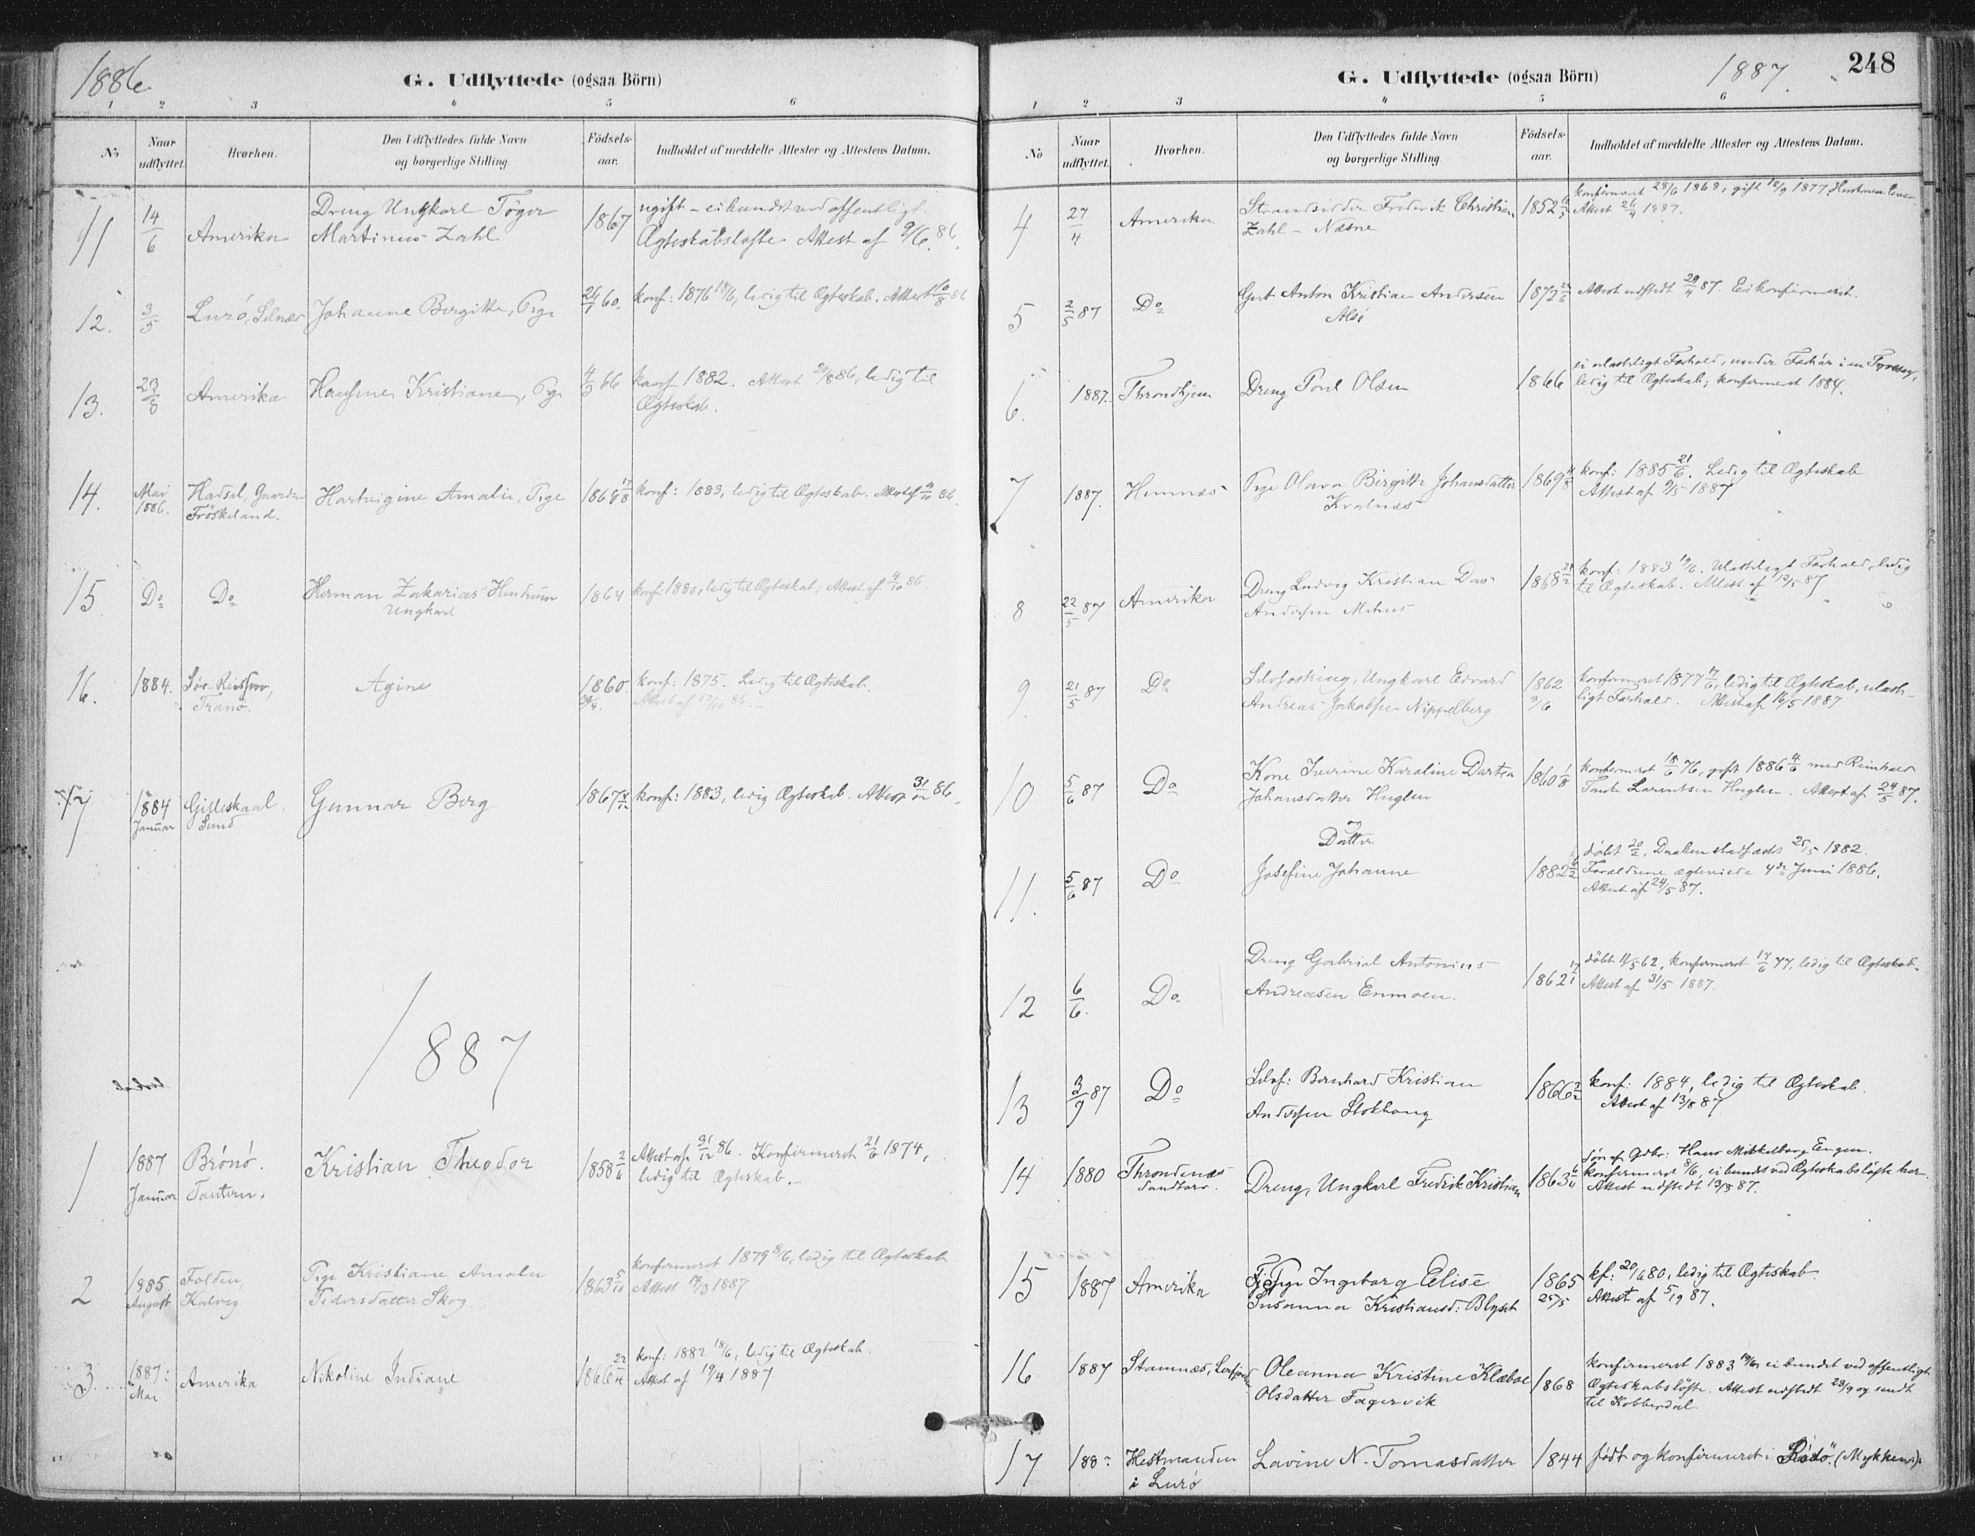 1886
G. Udflyttede (ogsaa Börn)
1 2 3 4 5 6
No
Naar udflyttet.
Hvorhen.
Den Udflyttedes fulde Navn og borgerlige Stilling
Födsels-aar.
Indholdet af meddelte Attester og Attestens Datum.
11 14/6 Amerika
Dreng Ungkarl Töger
Martinus Zahl
1867
ugift – ei bundet ved offentligt
Ægteskabsløfte Attest af 9/6 86.
12. 3/5 Lurö,
Johanne Birgitte, Pige
26/7 60.
konf: 1876 18/6, ledig til Ægteskab. Attest
13. Amerika
Kristiane, Pige
66
konf 1882. Attest 86, ledig til
Ægteskab.
14. Mai 1886.
Hadsel, Gaarden
Fröskeland.
Hartvigine Amalie, Pige
1869
konf: 1883, ledig til Ægteskab. Attest 86.
15. Do Do
Herman Zakarias
Ungkarl
1864
konf: 1880, ledig til Ægteskab, Attest af 4/10 86
16. 1884.
Tranö.
Agine
1860
konf: 1875. Ledig til Ægteskab.
Attest af 86.
17 1884 Januar
Gilleskaal
Sund
Gunnar Berg
1867
konf: 1883, ledig Ægteskab. Attest 31/12 86.
1887
1 1887 Januar
Brönö.
Kristian Theodor
1858
Attest af 31/12 86. Konfirmeret 21/6 1874,
ledig til Ægteskab.
2 1885 August
Folden,
Kalvig
Pige Kristiane Amalie
Pedersdatter Skog
1863 5/10
konfirmeret 1879 8/6, ledig til Ægteskab
Attest 1887
3. 1887: Mai
Amerika
Nikoline Indiane
1866
konf: 1882 18/6, ledig til Ægteskab.
Attest af 19/4 1887
G. Udflyttede (ogsaa Börn)
1887.
248
1 2 3 4 5 6
No
Naar udflyttet.
Hvorhen.
Den Udflyttedes fulde Navn og borgerlige Stilling
Födsels-aar.
Indholdet af meddelte Attester og Attestens Datum.
4 27/4 Amerika
Strandsidder Fredrik Christian
Zahl – Næsne
1852
konfirmeret 28/6 1868, gift 12/9 1877,
Attest 26/4 1887.
5 2/5 87 Do
Gut Anton Kristian Andersen
1872
Attest udstedt 87. Ei konfirmeret.
6. 1887. Throndhjem
Dreng Poul Olsen
1866
ledig til Ægteskab; konfirmeret 1884.
7 1887. Hemnæs
Pige Olava Birgitte Johansdatter
Kvalnæs
1869
konf: 1885 21/6. Ledig til Ægteskab
Attest af 9/5 1887
8 22/5 87 Amerika
Dreng Ludvig Kristian
Andersen
1868
konf: 1883 Ulasteligt Forhold, ledig
til Ægteskab. Attest af 87
9 21/5 87 Do
Ungkarl Edvard
Andreas Jakobsen Nippelberg
1862 3/6
konfirmeret 1877 17/6, ledig til Ægteskab, ulaste-
ligt Forhold. Attest af 16/5 1887
10 5/6 87 Do
Kone Karoline
Johansdatter Huglen
1860 1/8
konfirmeret 18/6 76, gift 1886 4/6 med
Larentsen Huglen. Attest af 24/5 87.
og
Datter
11. 5/6 87 Do
Josefine Johanne
1882
döbt 20/2, Daaben stadfæstet 25/5 1882.
Forældrene ægteviede 4de Juni 1886.
Attest af 24/5 87.
12 6/6. Do
Dreng Gabriel Antonius
Andreasen Enmoen.
1862 17/1
döbt 11/5 62, konfirmeret 17/6 77, ledig til Ægteskab.
Attest af 31/5 1887.
13 3/9 87 Do
Bernhard Kristian
Andersen
1866 2/2
konf: 1884, ledig til Ægteskab.
Attest af 13/8 87
14 1880 Throndenæs
Sandtorv.
Dreng, Ungkarl Fredrik Kristian
1863
Søn af Gdbr: Hans Mikkelborg Engen.
konfirmeret 8/6, ei bundet ved Ægteskabsløfte her.
Attest udstedt 87.
15 1887 Amerika
Pige Ingeborg Elise
Susanna Kristiansd:
1865 25/5
kf: 20/6 80, ledig til Ægteskab
Attest af 5/9 87.
16 1887 Stamnæs,
Oleanna Kristine Klæboe
Olsdatter Fagervik
1868
konfirmeret 1883 ei bundet ved offentligt
Ægteskabsløfte. Attest udstedt 23/9 og sendt
til Kobberdal.
17 188
Hestmanden
i Lurø
Lavine N. Tomasdatter
1844
født og konfirmeret i Rødø. (Mykken).